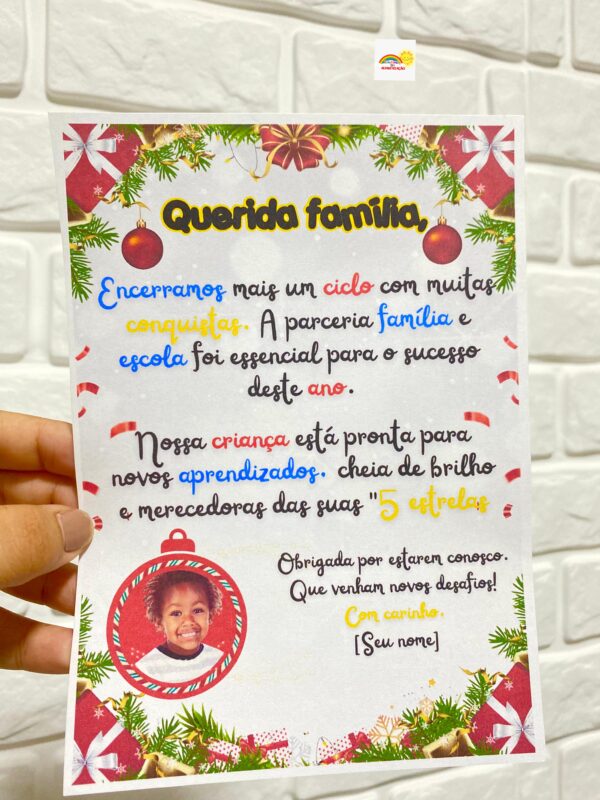 ALFABETIZAÇÃO
Querida família,
Encerramos mais um ciclo com muitas
conquistas. A parceria família e
escola foi essencial para o sucesso
deste ano.
Nossa criança está pronta para
novos aprendizados. cheia de brilho
e merecedoras das suas "5 estrelas
Obrigada por estarem conosco.
Que venham novos desafios!
Com carinho.
[Seu nome]